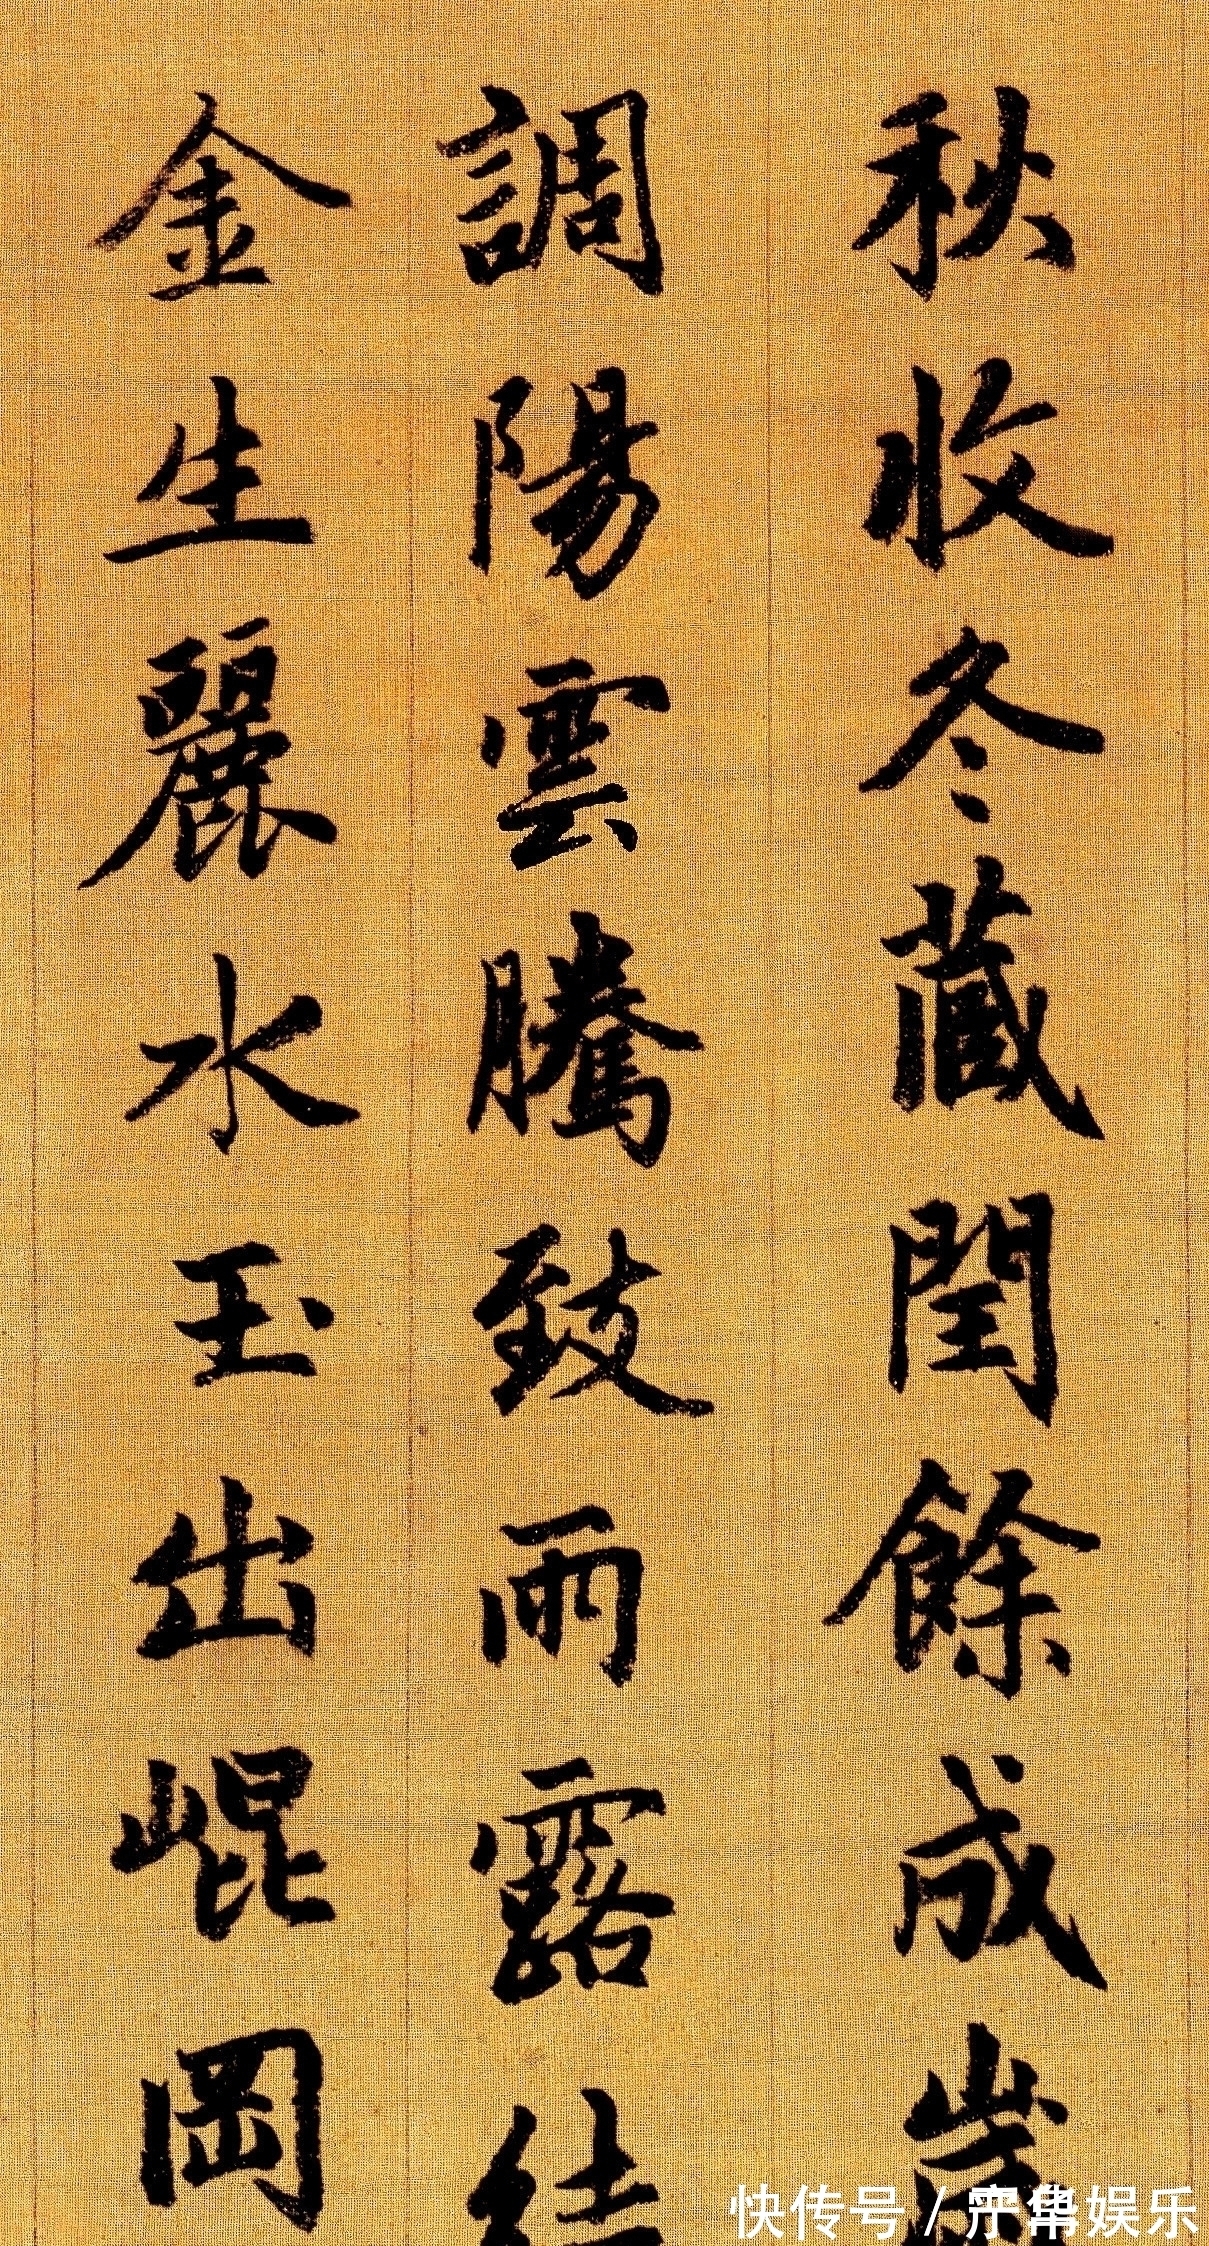 秋收冬藏閏餘成歲
調陽雲騰致雨露結
金生麗水玉出崐岡
快传号/
娱乐